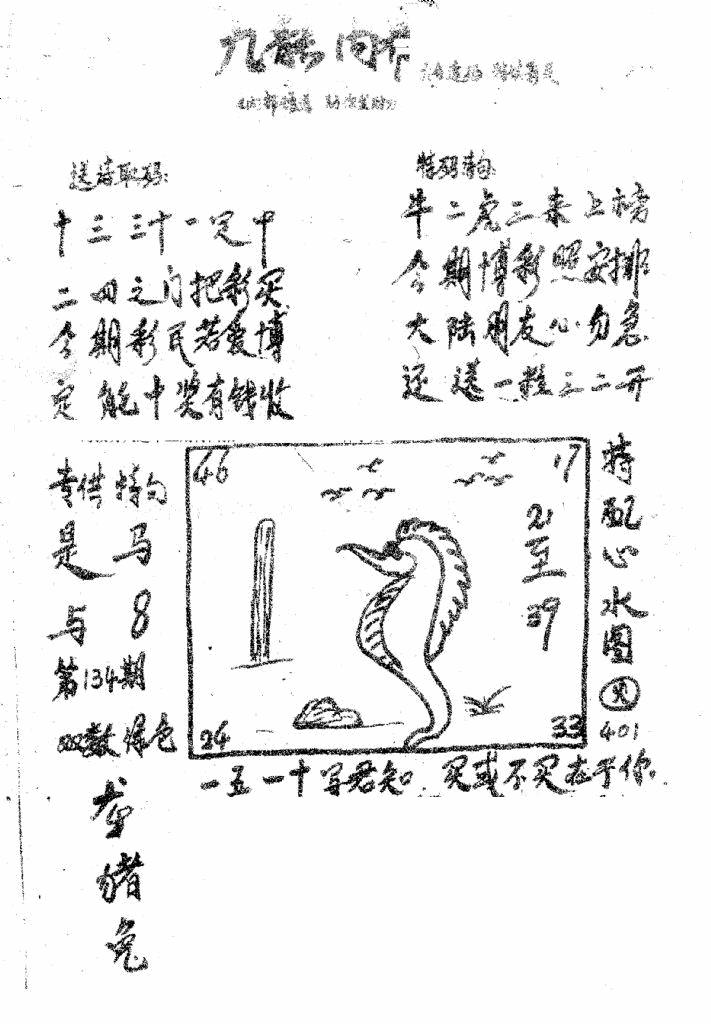 九龙内
送诗取码:
十三三十一定中
二四之门把彩买
今期彩民若爱博
定能中奖有钱收
特码诗:
牛二虎三来上榜
今期博彩照安排
大陆朋友心勿急
还送一粒三二开
专供特句
是马
与8
第134期
双数绿色
龙
猪
兔
46
17
21
至
39
24
33
特配心水图
401
一五一十写君知.买或不买在于你.